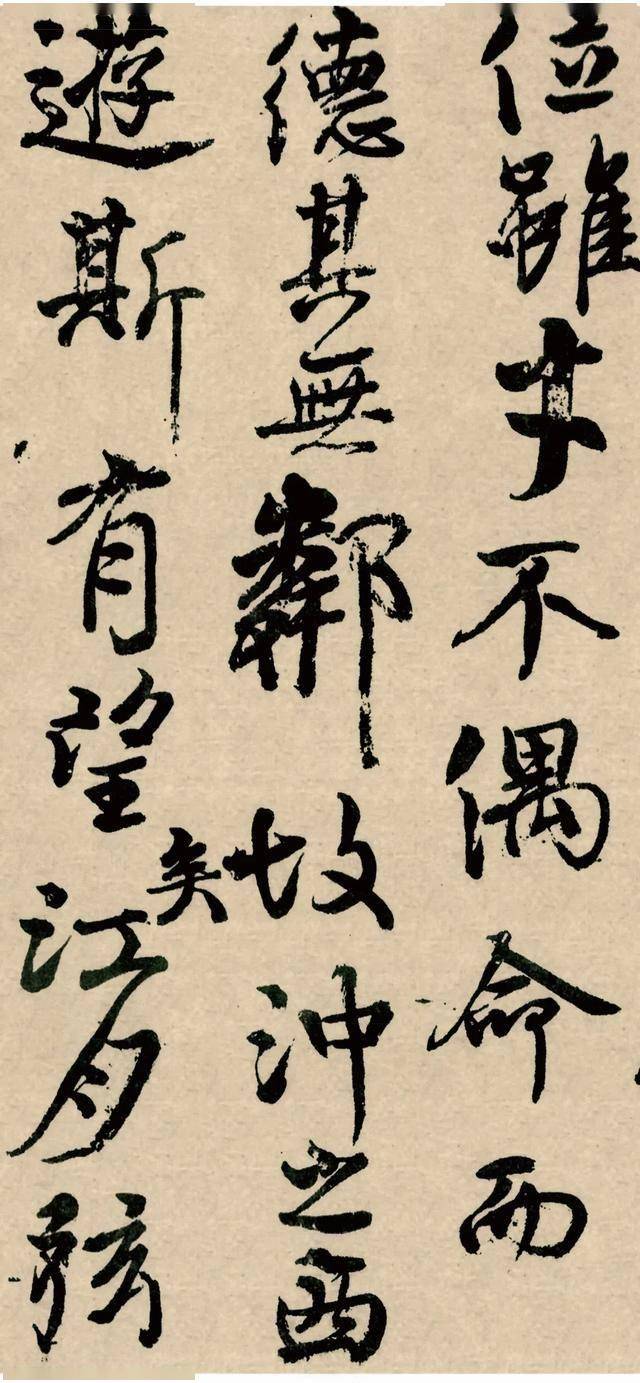 位雖才不偶命而
德其無鄰矣故沖之西
遊斯有望江月弦